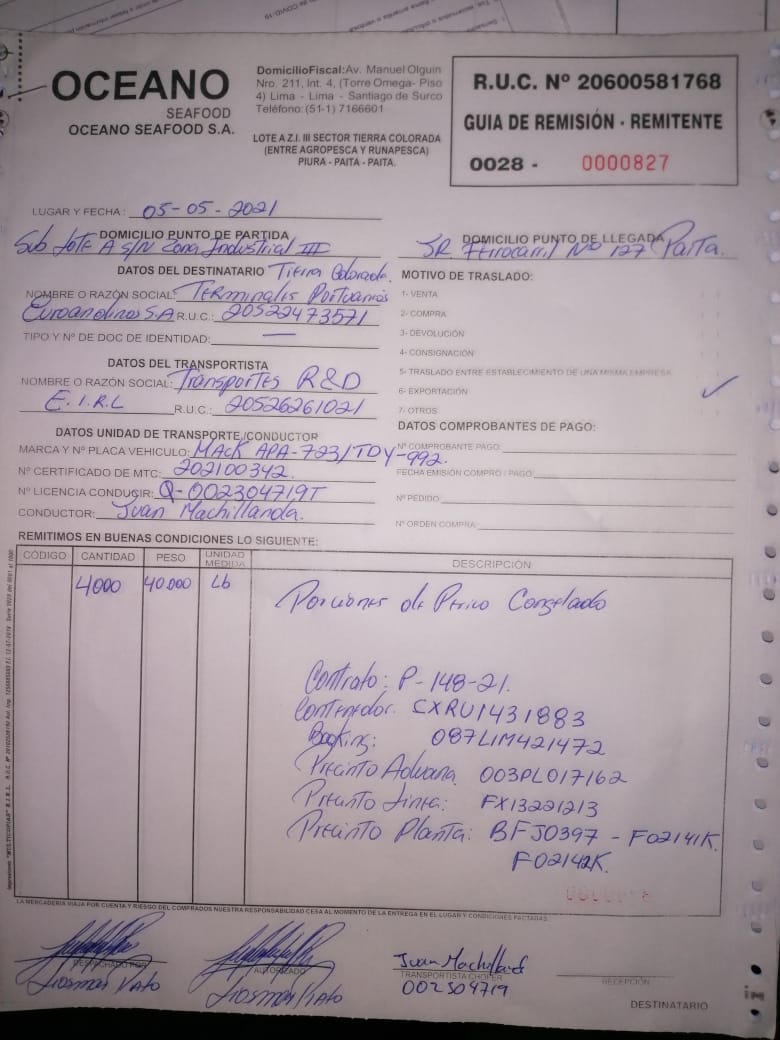 OCEANO
SEAFOOD
OCEANO SEAFOOD S.A.
Domicilio Fiscal: Av. Manuel Olguin
Nro. 211, Int. 4, (Torre Omega- Piso
4) Lima - Lima - Santiago de Surco
Teléfono: (51-1) 7166601
LOTE A Z.I. III SECTOR TIERRA COLORADA
(ENTRE AGROPESCA Y RUNAPESCA)
PIURA - PAITA - PAITA.
R.U.C. Nº 20600581768
GUIA DE REMISIÓN - REMITENTE
0028 - 0000827
LUGAR Y FECHA : 05-05-2021
DOMICILIO PUNTO DE PARTIDA
Sub Lote A S/N Zona Industrial III
Tierra Colorada.
DOMICILIO PUNTO DE LLEGADA
JR Ferrocarril Nº 127 Paita.
DATOS DEL DESTINATARIO
NOMBRE O RAZÓN SOCIAL: Terminales Portuarios
Euroandinos S.A R.U.C.: 20522473571
TIPO Y Nº DE DOC DE IDENTIDAD: —
DATOS DEL TRANSPORTISTA
NOMBRE O RAZÓN SOCIAL: Transportes R&D
E.I.R.L R.U.C.: 20526261021
DATOS UNIDAD DE TRANSPORTE /CONDUCTOR
MARCA Y Nº PLACA VEHICULO: MACK APA-723/TDY-992.
Nº CERTIFICADO DE MTC: 202100342
Nº LICENCIA CONDUCIR: Q-002304719T
CONDUCTOR: Juan Machillanda.
MOTIVO DE TRASLADO:
1- VENTA
2- COMPRA
3- DEVOLUCIÓN
4- CONSIGNACIÓN
5- TRASLADO ENTRE ESTABLECIMIENTO DE UNA MISMA EMPRESA
6- EXPORTACIÓN ✓
7- OTROS
DATOS COMPROBANTES DE PAGO:
Nº COMPROBANTE PAGO:
FECHA EMISIÓN COMPRO / PAGO:
Nº PEDIDO:
Nº ORDEN COMPRA:
REMITIMOS EN BUENAS CONDICIONES LO SIGUIENTE:
CÓDIGO CANTIDAD PESO UNIDAD MEDIDA DESCRIPCIÓN
4000 40.000 Lb Porciones de Perico Congelado
Contrato: P-148-21.
Contenedor. CXRU1431883
Booking: 087LIM421472
Precinto Aduana 003PL017162
Precinto Linea: FX13221213
Precinto Planta: BFJ0397 - F02141K
F02142K.
LA MERCADERIA VIAJA POR CUENTA Y RIESGO DEL COMPRADOS NUESTRA RESPONSABILIDAD CESA AL MOMENTO DE LA ENTREGA EN EL LUGAR Y CONDICIONES PACTADAS.
DESPACHADO POR
AUTORIZADO
Juan Machilland
TRANSPORTISTA CHOFER
002304719
RECEPCIÓN
DESTINATARIO